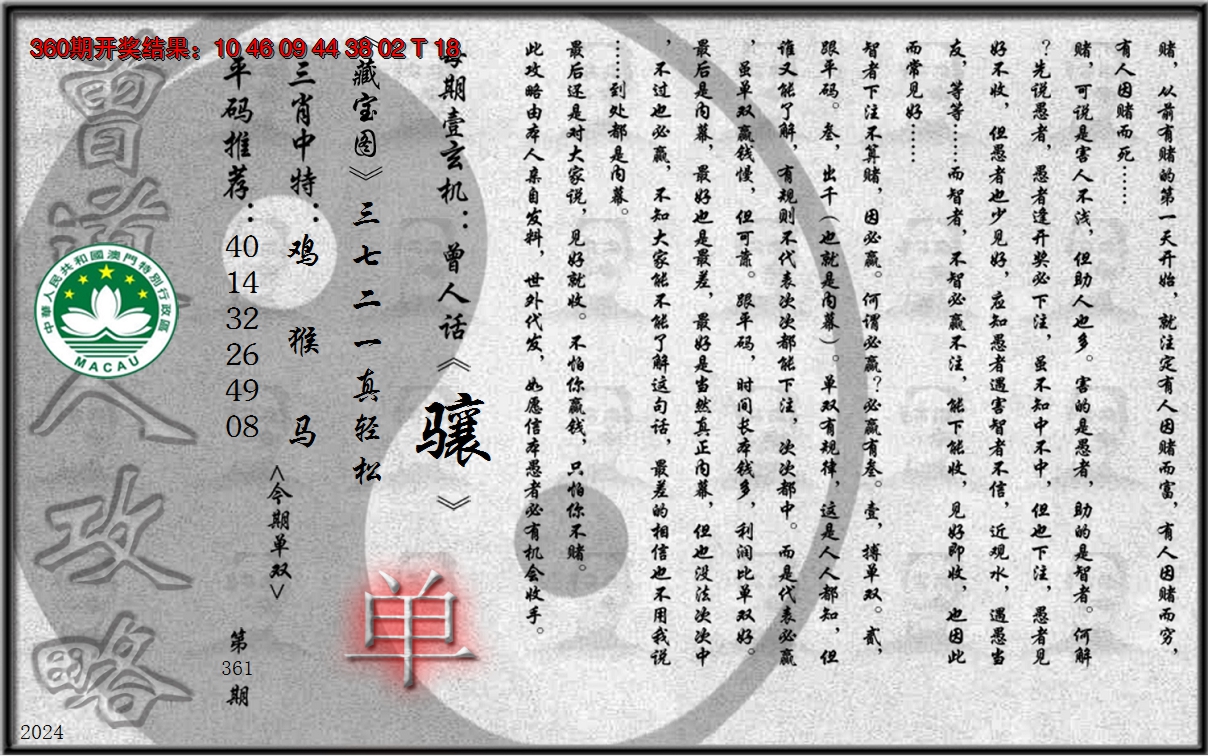 360期开奖结果：10 46 09 44 38 02 T 18
赌，从前有赌的第一天开始，就注定有人因赌而富，有人因赌而穷，
有人因赌而死……
赌，可说是害人不浅，但助人也多。害的是愚者，助的是智者。何解
？先说愚者，愚者逢开奖必下注，虽不知中不中，但也下注，愚者见
好不收，但愚者也少见好，应知愚者遇害智者不信，近观水，遇愚当
友，等等……而智者，不智必赢不注，能下能收，见好即收，也因此
而常见好……
智者下注不算赌，因必赢。何谓必赢？必赢有叁。壹，搏单双。贰，
跟平码。叁，出千（也就是内幕）。单双有规律，这是人人都知，但
谁又能了解，有规则不代表次次都能下注，次次都中。而是代表必赢
，虽单双赢钱慢，但可靠。跟平码，时间长本钱多，利润比单双好。
最后是内幕，最好也是最差，最好是当然真正内幕，但也没法次次中
，不过也必赢，不知大家能不能了解这句话，最差的相信也不用我说
……到处都是内幕。
最后还是对大家说，见好就收。不怕你赢钱，只怕你不赌。
此攻略由本人亲自发料，世外代发，如愿信本愚者必有机会收手。
每期壹玄机：曾人话《骧》
《藏宝图》三七二一真轻松
单
三肖中特：鸡 猴 马
<今期单双>
平码推荐：
40
14
32
26
49
08
第
361
期
曾道人攻略
中華人民共和國澳門特別行政區
MACAU
2024